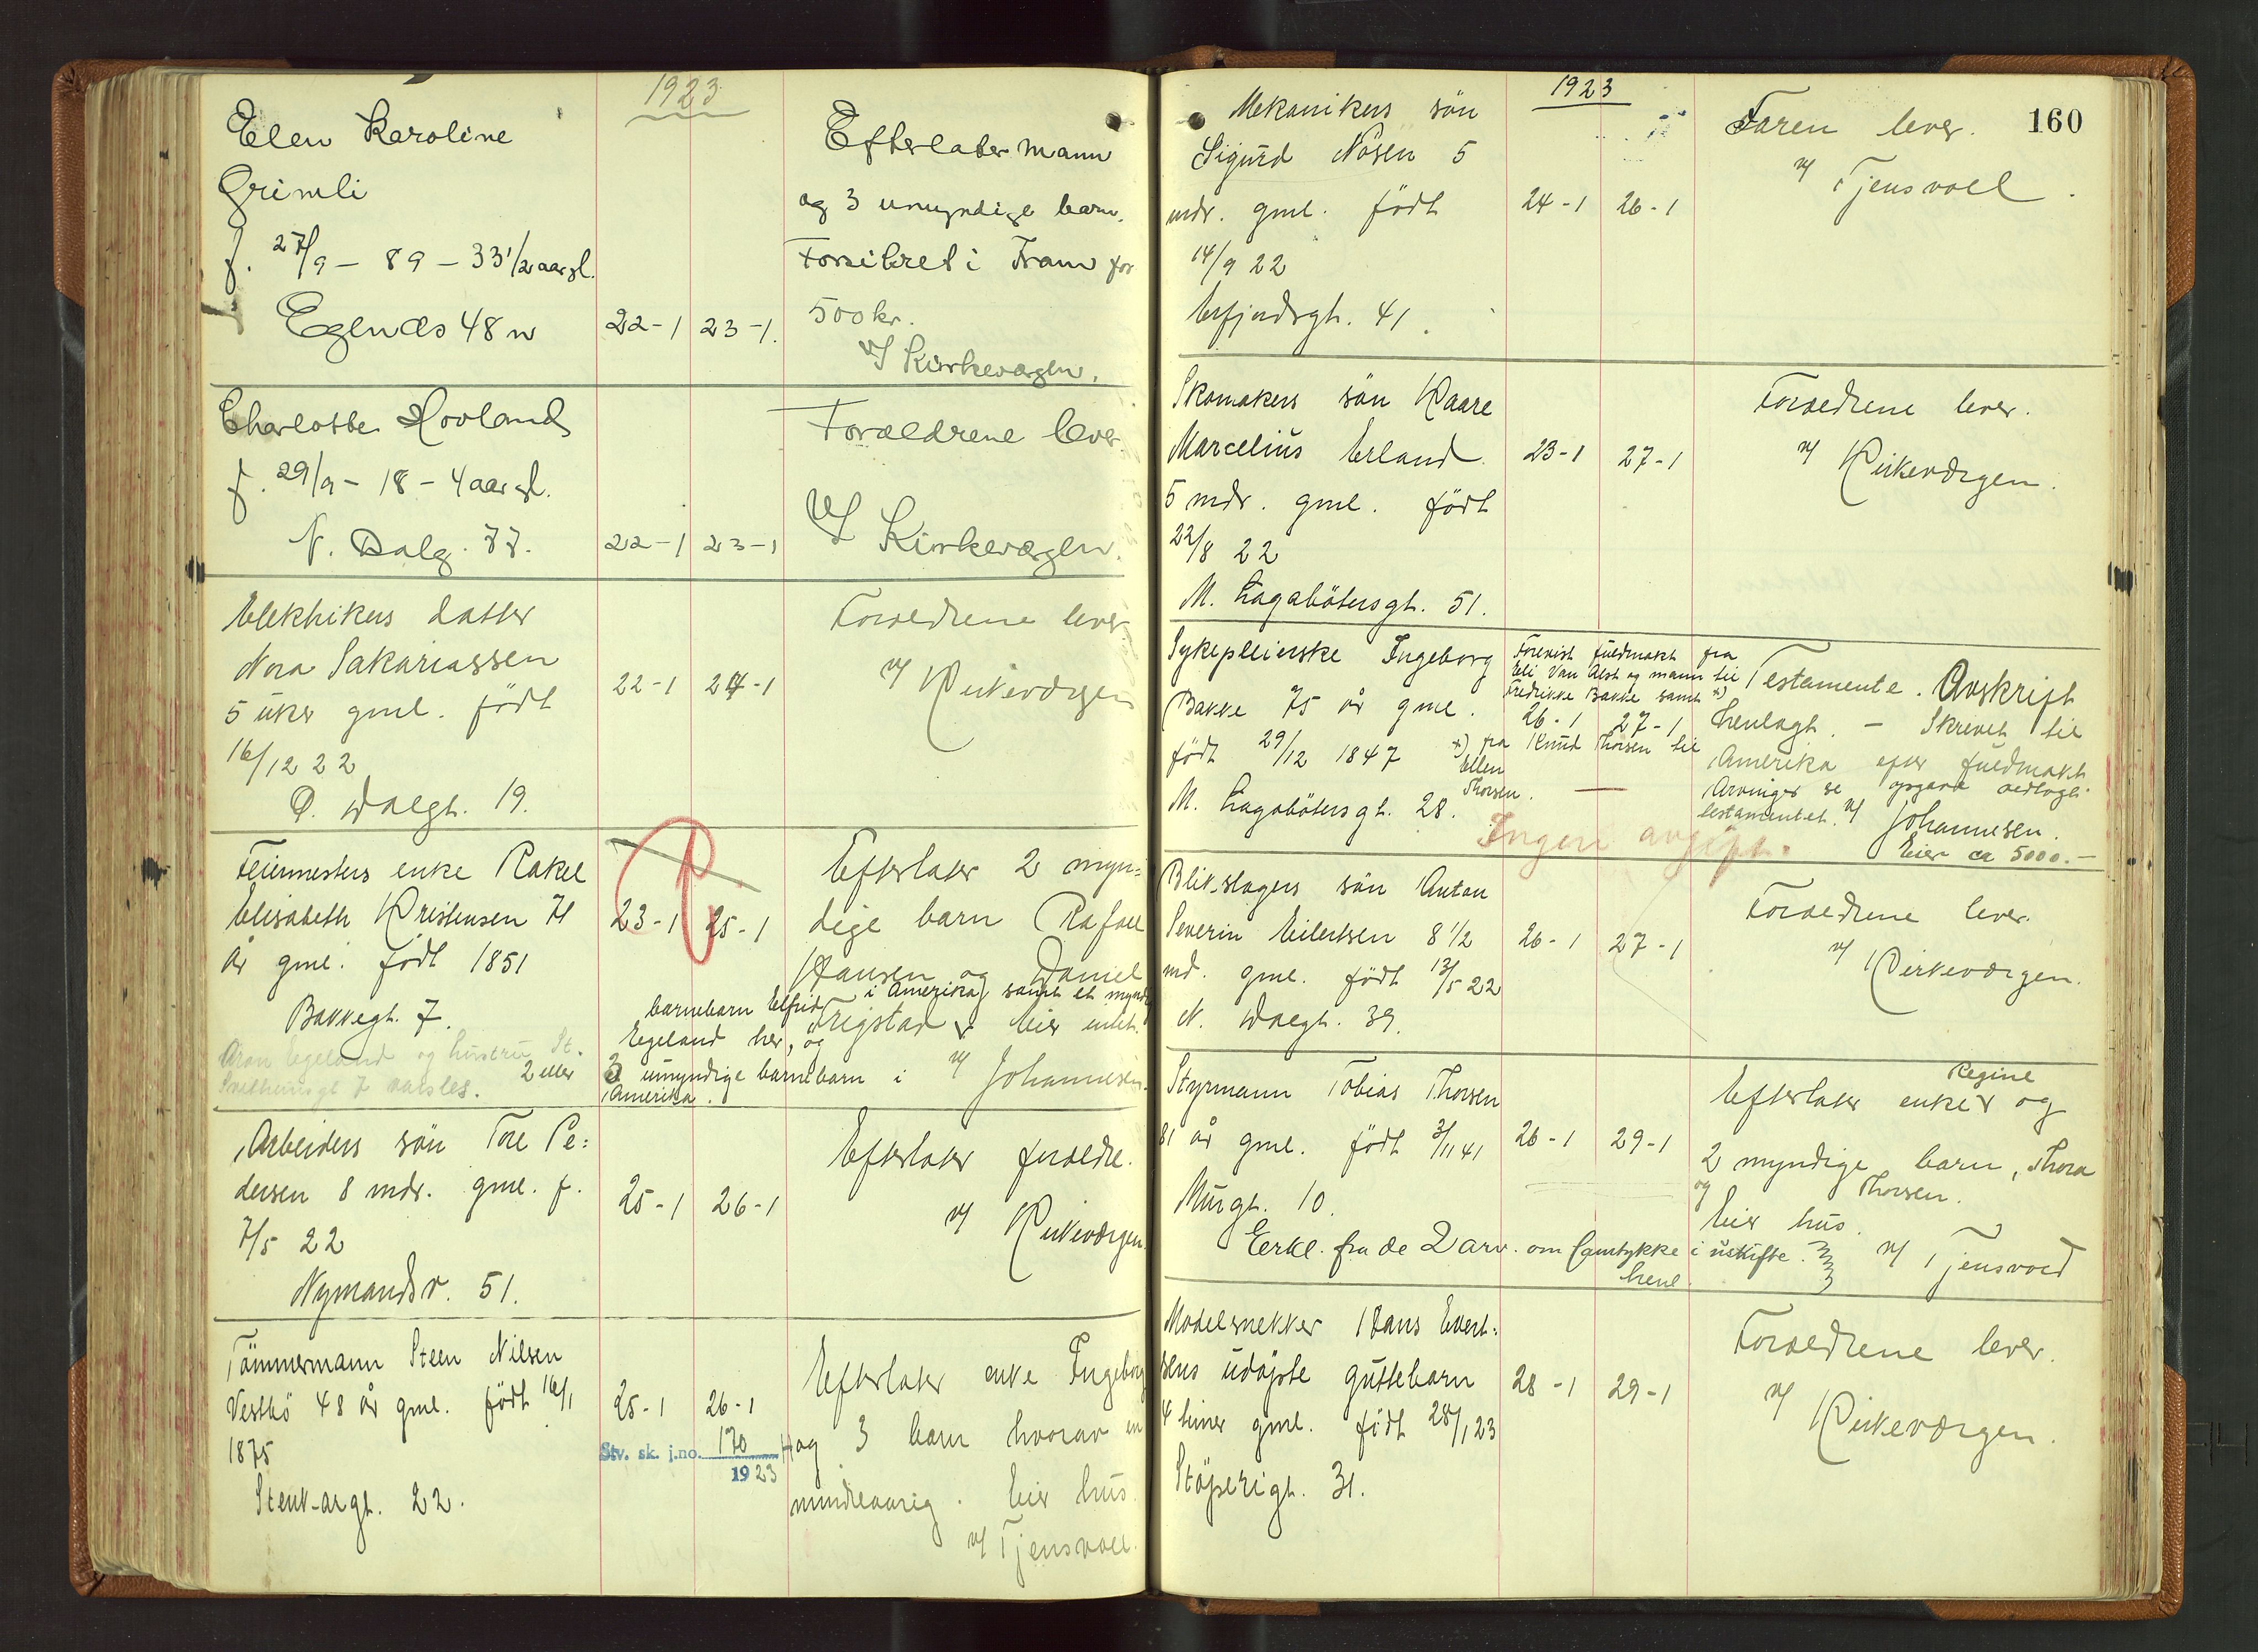 1923
Elen Karoline
Grimli
f. 27/9 - 89 - 33 1/2 aar gl.
Egenæs 48 n
22-1 23-1.
Efterlater mann
og 3 umyndige barn.
Forsikret i Fram for
500 kr.
v/ Kirkevergen.
Charlotte Hovland
f. 29/9 - 18 - 4 aar gl.
N. Dalg. 77.
22-1 23-1
Forældrene lever
v/ Kirkevergen.
Elektrikers datter
Nora Sakariassen
5 uker gml. født
16/12 22
Ø. Dalgt. 19.
22-1 24-1
Forældrene lever
v/ Kirkevergen
Feiermesters enke Rakel
Elisabeth Kristensen 71
år gml. født 1851
Bakkegt. 7.
23-1 25-1
Efterlater 2 myn=
dige barn Rafael
Hansen og Daniel
i Amerika, samt et myndig
barnebarn Elfrid
Trigstad Eier intet.
Egeland her, og
2 eller 3 umyndige barnebarn i
Amerika.
v/ Johannesen.
Aron Egeland og hustru St.
7 varsles.
Arbeiders søn Tore Pe=
dersen 8 mdr. gml. f.
7/5 22
Nymandsv. 51.
25-1 26-1
Efterlater forældre.
v/ Kirkevergen.
Tømmermann Steen Nilsen
Vestbø 48 år gml. født 16/1
1875
Stenk-argt. 22.
25-1 26-1
Stv. sk. j.no. 170
1923
Efterlater enke Ingeborg
og 3 barn hvorav en
mindreaarig. Eier hus.
v/ Tjensvoll.
160
1923
Mekanikers søn
Sigurd Nåsen 5
mdr. gml. født
14/9 22
Erfjordsgt. 41.
24-1 26-1
Faren lever.
v/ Tjensvoll.
Skomakers søn Kaare
Marcelius Erland
5 mdr. gml. født
22/8 22
M. Lagabøtersgt. 51.
23-1 27-1
Forældrene lever.
v/ Kirkevergen.
Sykepleierske Ingeborg
Bakke 75 år gml.
født 29/12 1847
M. Lagabøtersgt. 28.
Forevist fuldmakt fra
Eli Van Alst og mann til
Fredrikke Bakke samt x)
26-1 27-1
x) fra Knud Thorsen til
Ellen
Thorsen.
Testamente. Avskrift
henlagt. - Skrevet til
Amerika efter fuldmakt
Arvinger se opgave vedlagt
testamentet. v/ Johannesen.
Eier ca 5000.-
Ingen avgift.
Blikslagers søn Anton
Severin Eilertsen 8 1/2
md. gml. født 13/5 22
N. Dalgt. 39.
26-1 27-1
Forældrene lever.
v/ Kirkevergen.
Styrmann Tobias Thorsen
81 år gml. født 3/11 41
Murgt. 10.
26-1 29-1
Regine
Efterlater enke og
2 myndige barn, Thora
og Thorsen.
Eier hus.
Erkl. fra de 2 arv. om samtykke i uskifte.
henl.
v/ Tjensvold
Modelsnekker Hans Evert=
sens udøpte guttebarn
4 timer gml. født 28/1 23
Støperigt. 31.
28-1 29-1
Forældrene lever.
v/ Kirkevergen.